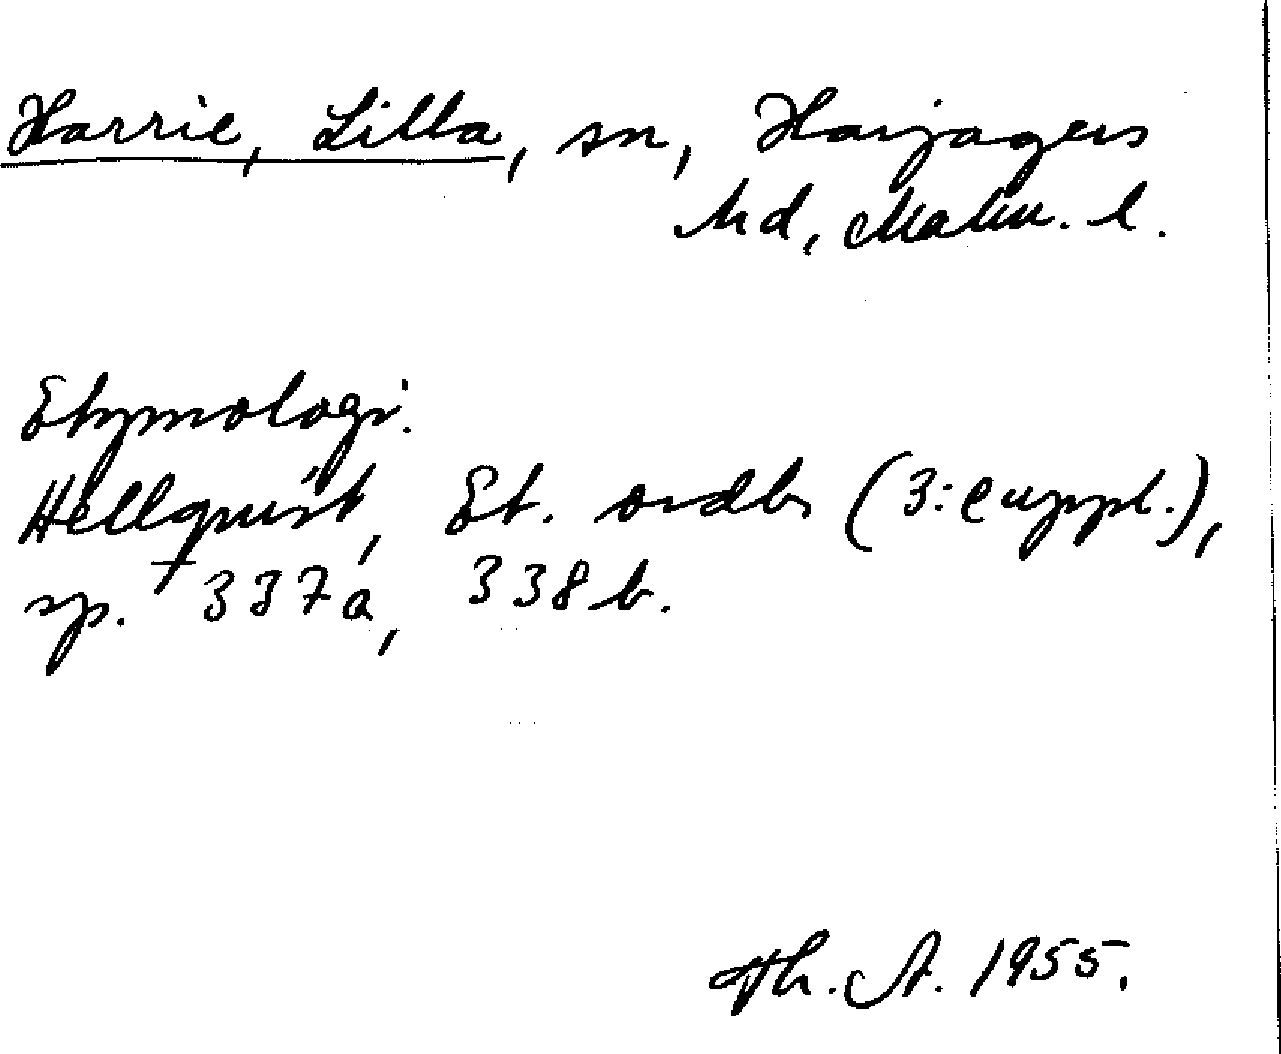 Harrie, Lilla, sn, Harjagers
hd, Malm. l.
Etymologi.
Hellquist, Et. ordb (3:e uppl.),
sp. 337a, 338b.
Th. A. 1955.